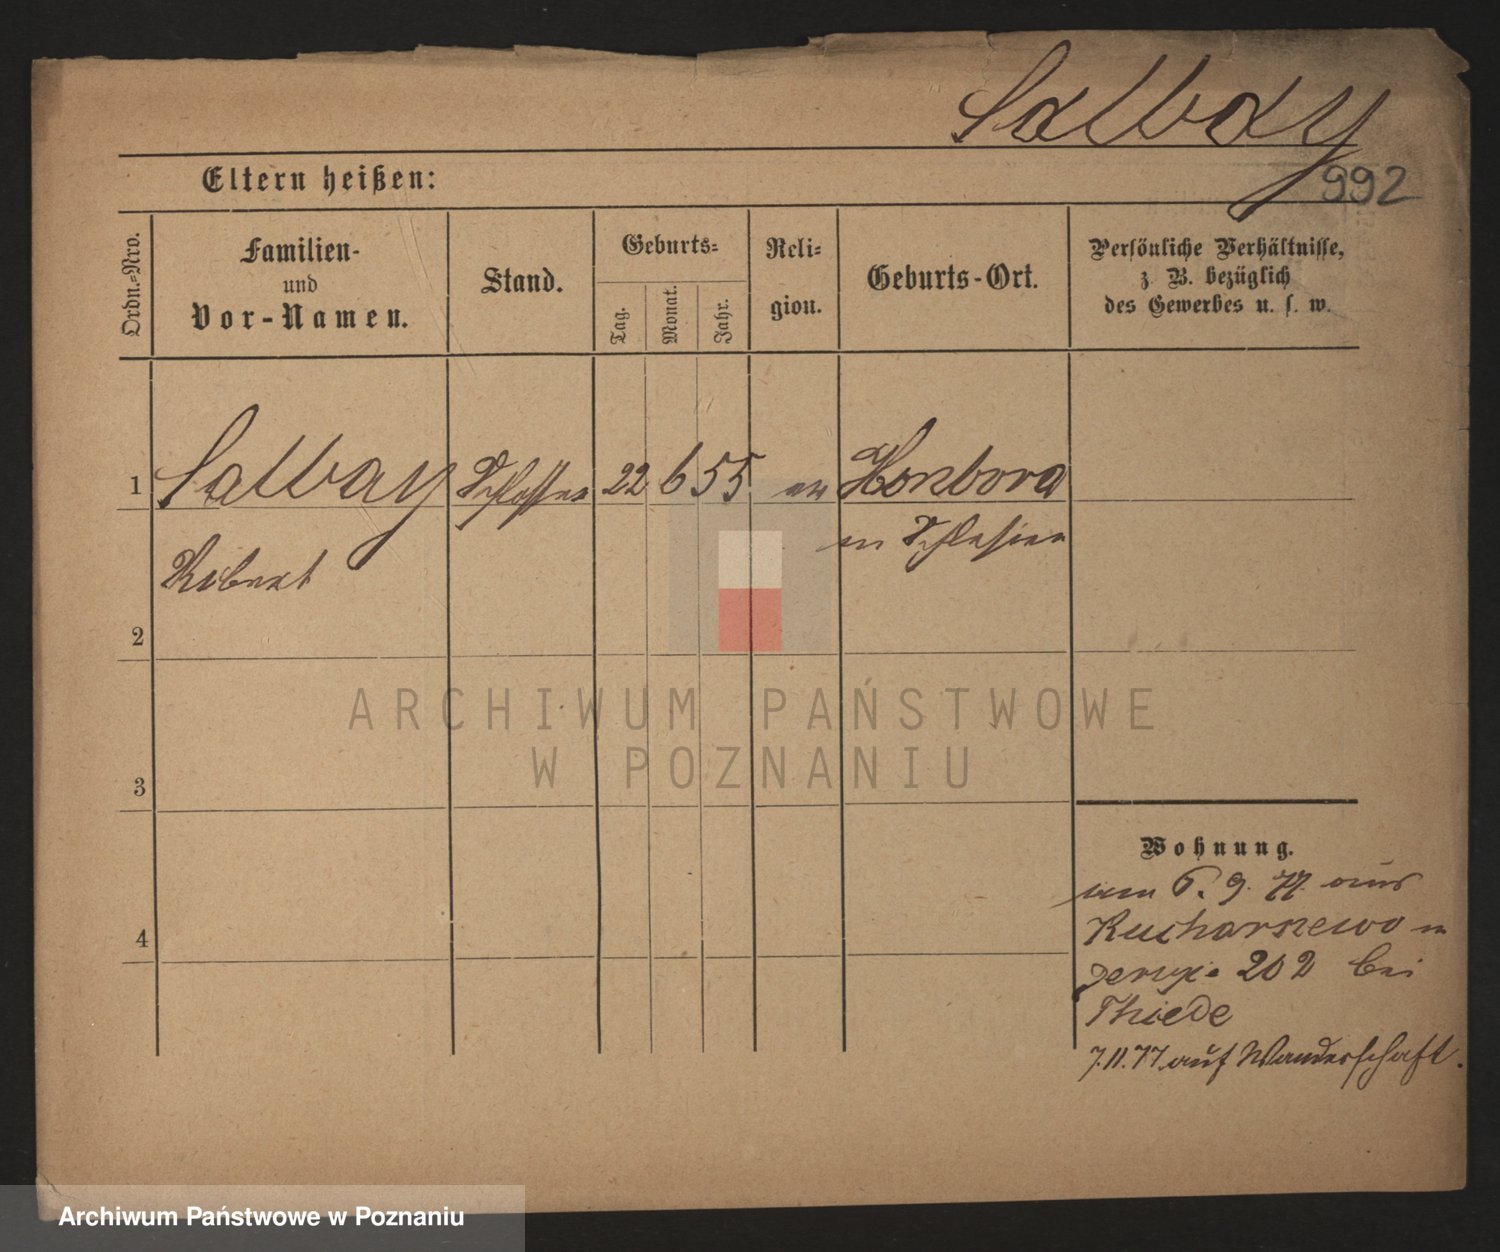 Salbay
Eltern heißen:
992
Ordn.-Nro.
Familien-
und
Vor-Namen.
Stand.
Geburts-
Tag.
Monat.
Jahr.
Reli-
gion.
Geburts-Ort.
Persönliche Verhältnisse,
z. B. bezüglich
des Gewerbes u. s. w.
1 Salbay Schlosser 22 6 55 ev
in Schlesien
Robert
2
ARCHIWUM PAŃSTWOWE
W POZNANIU
3
Wohnung.
am 6. 9. 77. aus
Kucharszewo in
202 bei
Thiede
7.11.77 auf Wanderschaft.
4
Archiwum Państwowe w Poznaniu